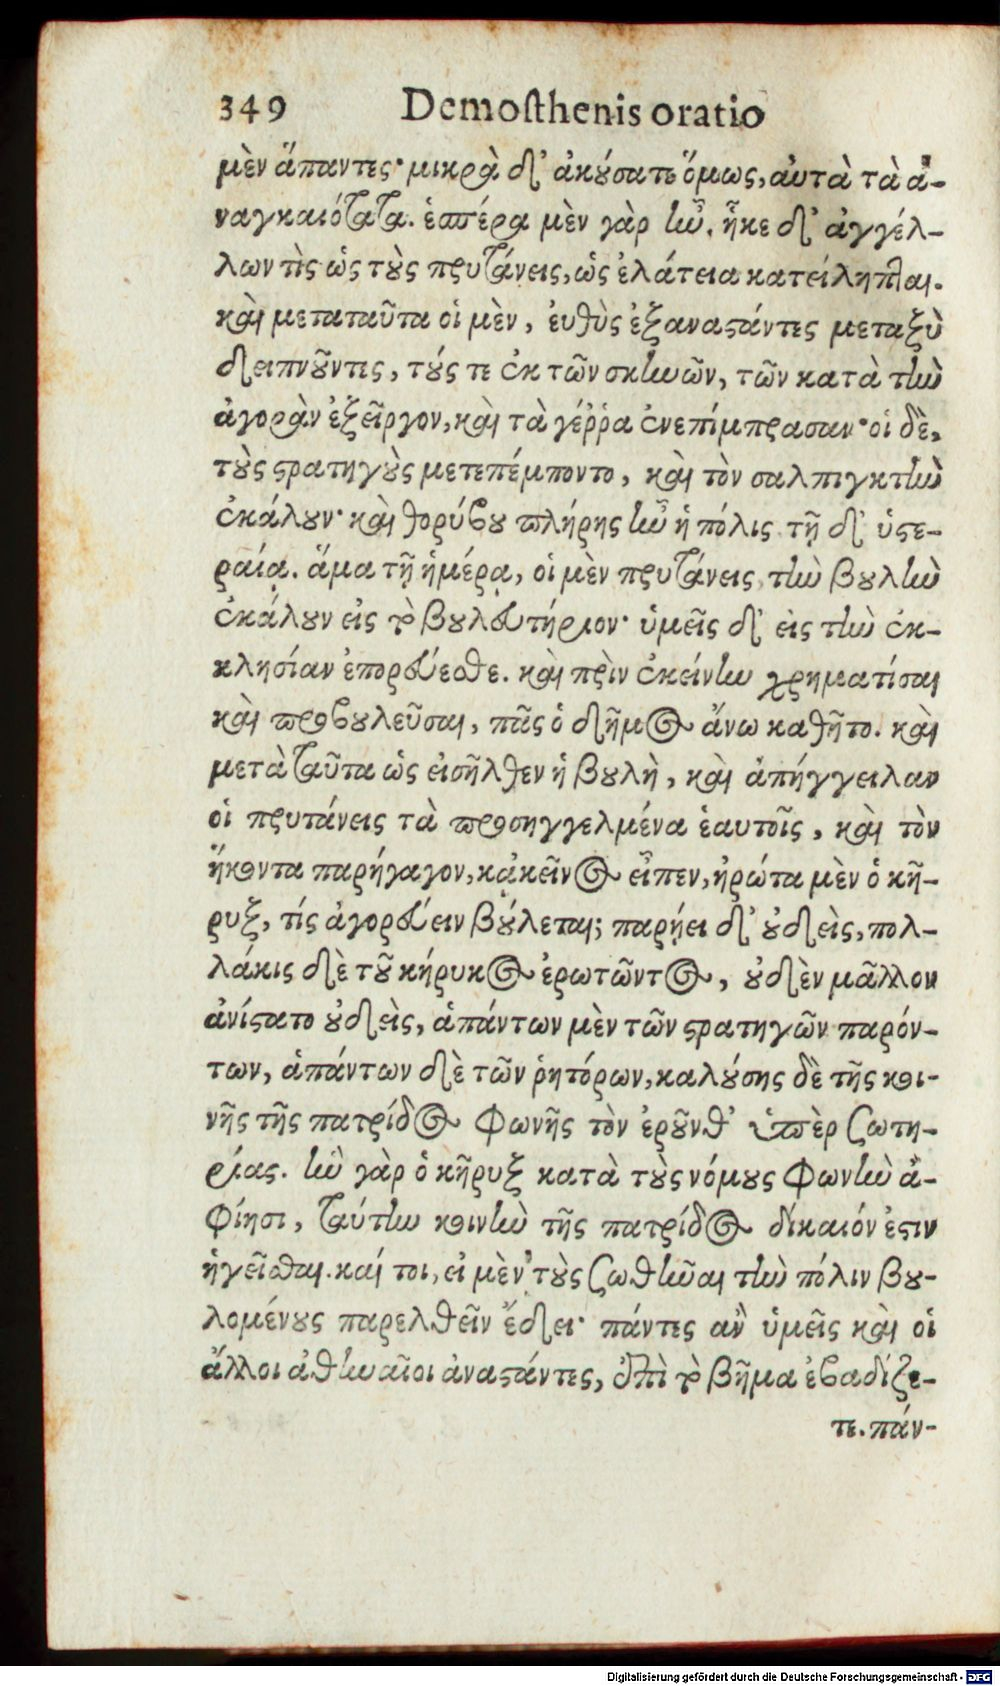 349 Demosthenis oratio
μὲν ἅπαντες· μικρὰ δ' ἀκούσατε ὅμως, αὐτὰ τὰ ἀ-
ναγκαιότατα. ἑσπέρα μὲν γὰρ ἦν, ἧκε δ' ἀγγέλ-
λων τὶς ὡς τοὺς πρυτάνεις, ὡς ἐλάτεια κατείληπται.
καὶ μεταταῦτα οἱ μὲν, ἐυθὺς ἐξαναστάντες μεταξὺ
δειπνοῦντες, τούς τε ἐκ τῶν σκηνῶν, τῶν κατὰ τὴν
ἀγορὰν ἐξεῖργον, καὶ τὰ γέῤῥα ἐνεπίμπρασαν· οἱ δὲ,
τοὺς στρατηγοὺς μετεπέμποντο, καὶ τὸν σαλπιγκτὴν
ἐκάλουν· καὶ θορύβου πλήρης ἦν ἡ πόλις. τῇ δ' ὑστε-
ραίᾳ. ἅμα τῇ ἡμέρᾳ, οἱ μὲν πρυτάνεις τὴν βουλὴν
ἐκάλουν εἰς τὸ βουλευτήριον· ὑμεῖς δ' εἰς τὴν ἐκ-
κλησίαν ἐπορεύεσθε. καὶ πρὶν ἐκείνην χρηματίσαι
καὶ προβουλεῦσαι, πᾶς ὁ δῆμος ἄνω καθῆτο. καὶ
μετὰ ταῦτα ὡς εἰσῆλθεν ἡ βουλὴ, καὶ ἀπήγγειλαν
οἱ πρυτάνεις τὰ προσηγγελμένα ἑαυτοῖς, καὶ τὸν
ἥκοντα παρήγαγον, κᾀκεῖνος εἶπεν, ἠρώτα μὲν ὁ κῆ-
ρυξ, τίς ἀγορεύειν βούλεται; παρῄει δ' οὐδεὶς, πολ-
λάκις δὲ τοῦ κήρυκος ἐρωτῶντος, οὐδὲν μᾶλλον
ἀνίστατο οὐδεὶς, ἁπάντων μὲν τῶν στρατηγῶν παρόν-
των, ἁπάντων δὲ τῶν ῥητόρων, καλούσης δὲ τῆς κοι-
νῆς τῆς πατρίδος φωνῆς τὸν ἐροῦνθ' ὑπὲρ σωτη-
ρίας. ἣν γὰρ ὁ κῆρυξ κατὰ τοὺς νόμους φωνὴν ἀ-
φίησι, ταύτην κοινὴν τῆς πατρίδος δίκαιόν ἐστιν
ἡγεῖσθαι. καί τοι, εἰ μὲν τοὺς σωθῆναι τὴν πόλιν βου-
λομένους παρελθεῖν ἔδει· πάντες ἂν ὑμεῖς καὶ οἱ
ἄλλοι ἀθηναῖοι ἀναστάντες, ἐπὶ τὸ βῆμα ἐβαδίζε-
τε. πάν-
Digitalisierung gefördert durch die Deutsche Forschungsgemeinschaft - DFG